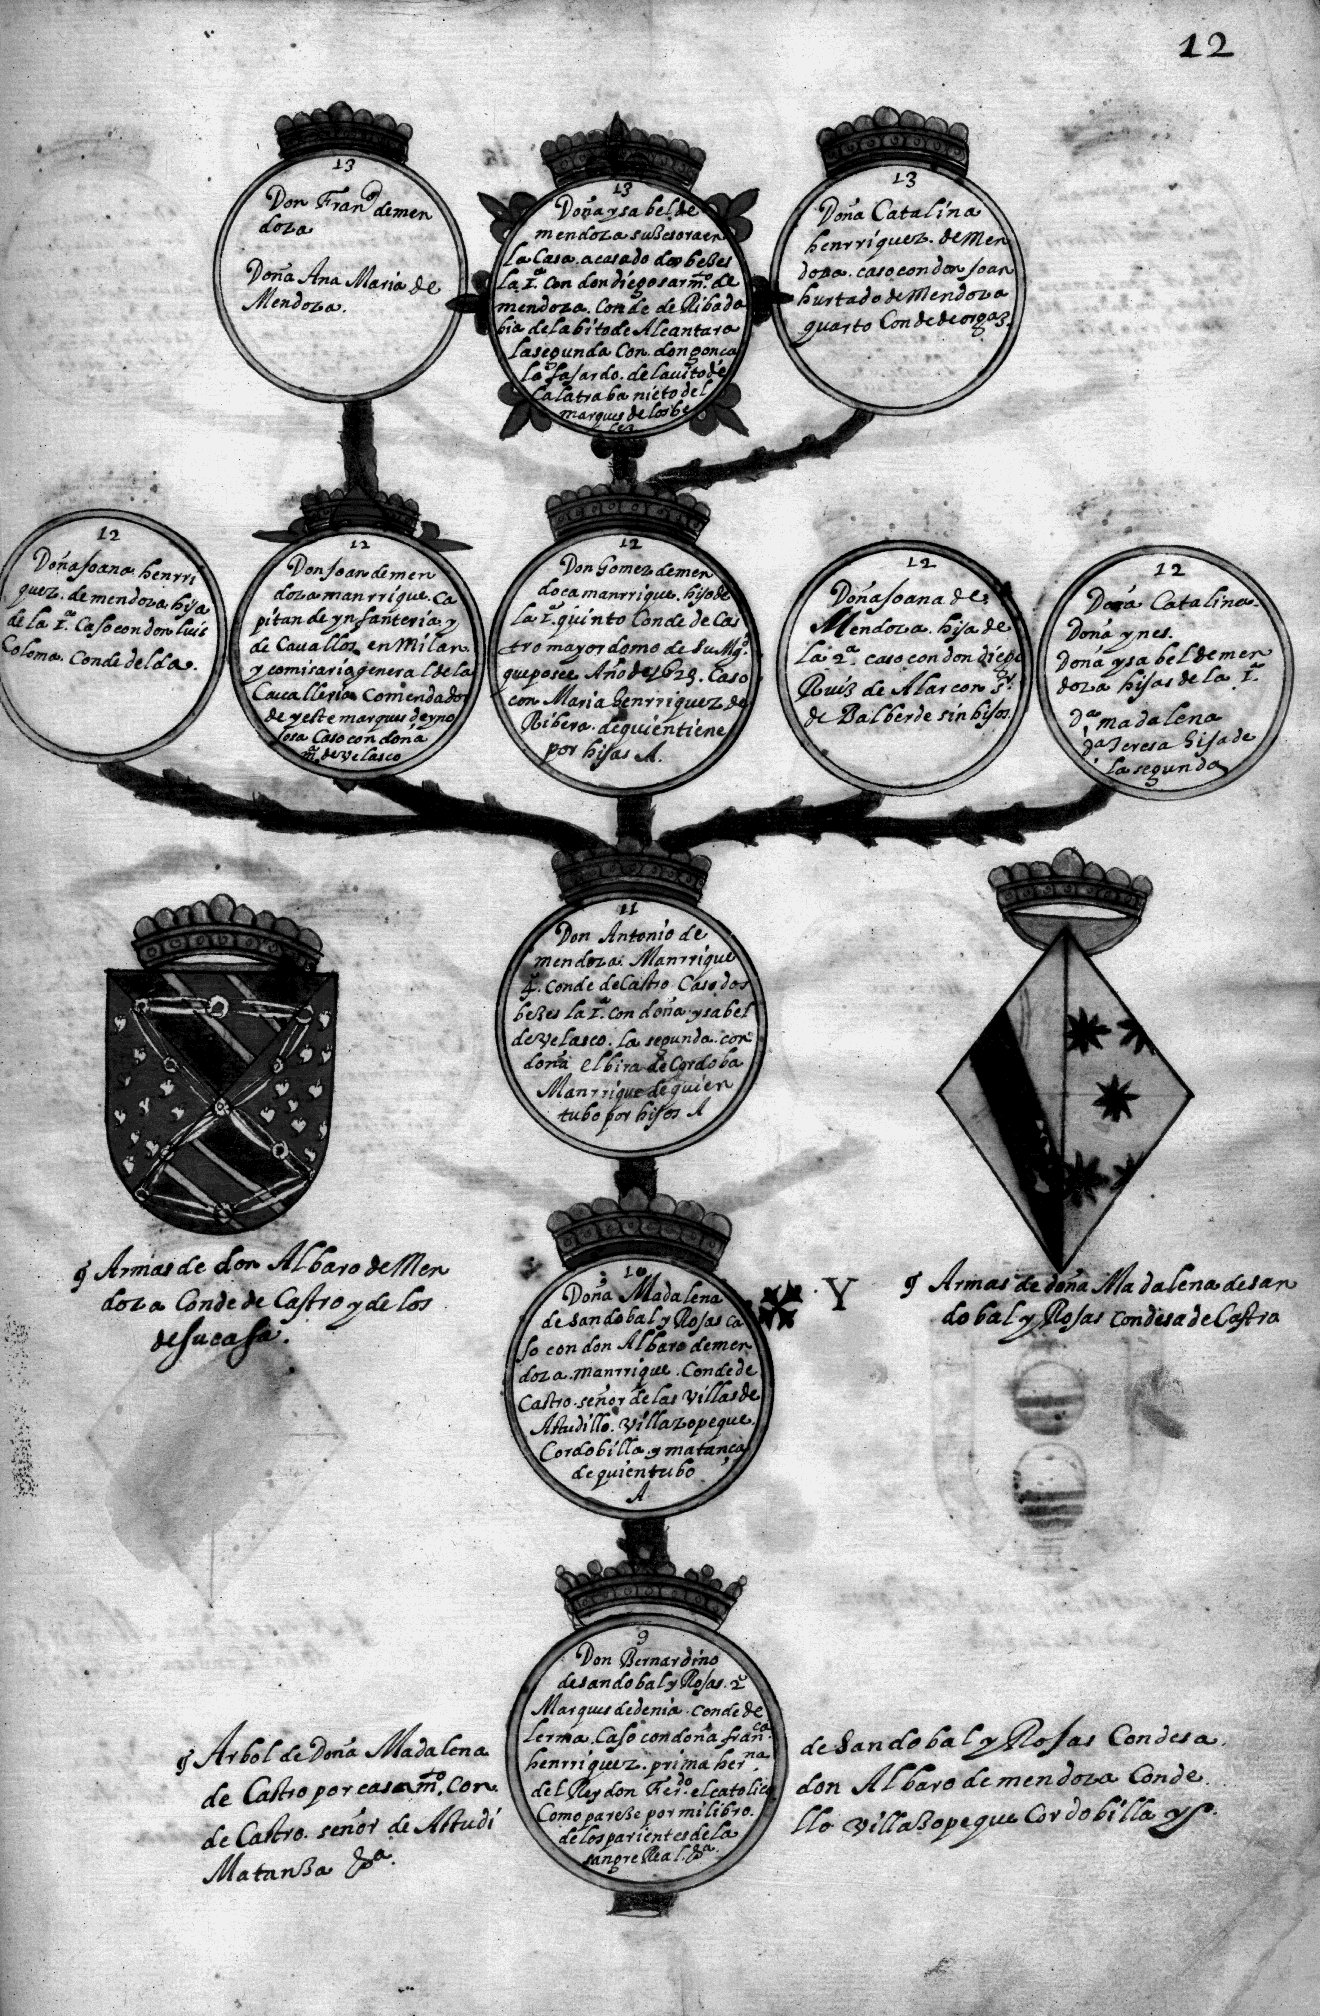 12
13
Don Franco demen
doza
Doña Ana Maria de
Mendoza.
13
Doña ysabel de
mendoza subesora en
la Casa. acasado dos beβes
la 1ª. Con don diego sarmo. de
mendoza. Conde de Ribada
bia de labito de Alcantara
la segunda Con don gonca
lo fasardo. de lauito de
Calatraba nieto del
marques de los be
lez
13
Doña Catalina
henrriquez. de Men
doza. caso con don Joan
hurtado de Mendoza
quarto Conde de orgaz.
12
Doña Joana henrri
quez. de mendoza hija
de la 1ª. Caso con don luis
Coloma. Conde delda.
12
Don Joan de men
doza manrrique. Ca
pitan de ynfanteria y
de Cauallos en Milan
y comisario general de la
Caualleria Comendador
de yeste marques de yno
josa Caso con doña
mª. de velasco
12
Don Gomez de men
doca manrrique. hijo de
la 1ª. quinto Conde de Cas
tro mayordomo de su Mgd.
que posee Año de 1625. Caso
con Maria henrriquez de
Ribera. de quien tiene
por hijas A.
12
Doña Joana de
Mendoza. hija de
la 2ª. caso con don diego
Ruiz de Alarcon sr.
de Balberde sin hijos.
12
Doña Catalina.
Doña ynes.
Doña ysabel de men
doza hijas de la 1ª
Dª madalena
Dª Teresa hija de
la segunda
11
Don Antonio de
mendoza. Manrrique
4º. Conde de Castro Caso dos
beβes la 1ª. con doña ysabel
de velasco. la segunda. con
doña elbira de Cordoba
Manrrique de quien
tubo por hijos A
10
Doña Madalena
de sandobal y Rojas Ca
so con don Albaro de men
doza. manrrique. Conde de
Castro. señor de las villas de
Astudillo. villazopeque.
Cordobilla. y matança
de quien tubo
A
Y
Armas de don Albaro de Men
doza Conde de Castro y de los
de su casa.
Armas de doña Madalena de san
dobal y Rojas condesa de Castro
9
Don Bernardino
de sandobal y Rojas. 2º
Marques de denia. conde de
lerma. Caso con doña franca
henrriquez. prima herna.
del Rey don Ferdo. el catolico
Como pareβe por mi libro.
de los parientes de la
sangre Real. &a.
Arbol de Doña Madalena de Sandobal y Rojas Condesa.
de Castro por casamo. con don Albaro de mendoza Conde
de Castro. señor de Astudi llo villaβopeque Cordobilla y
Matanβa &a.